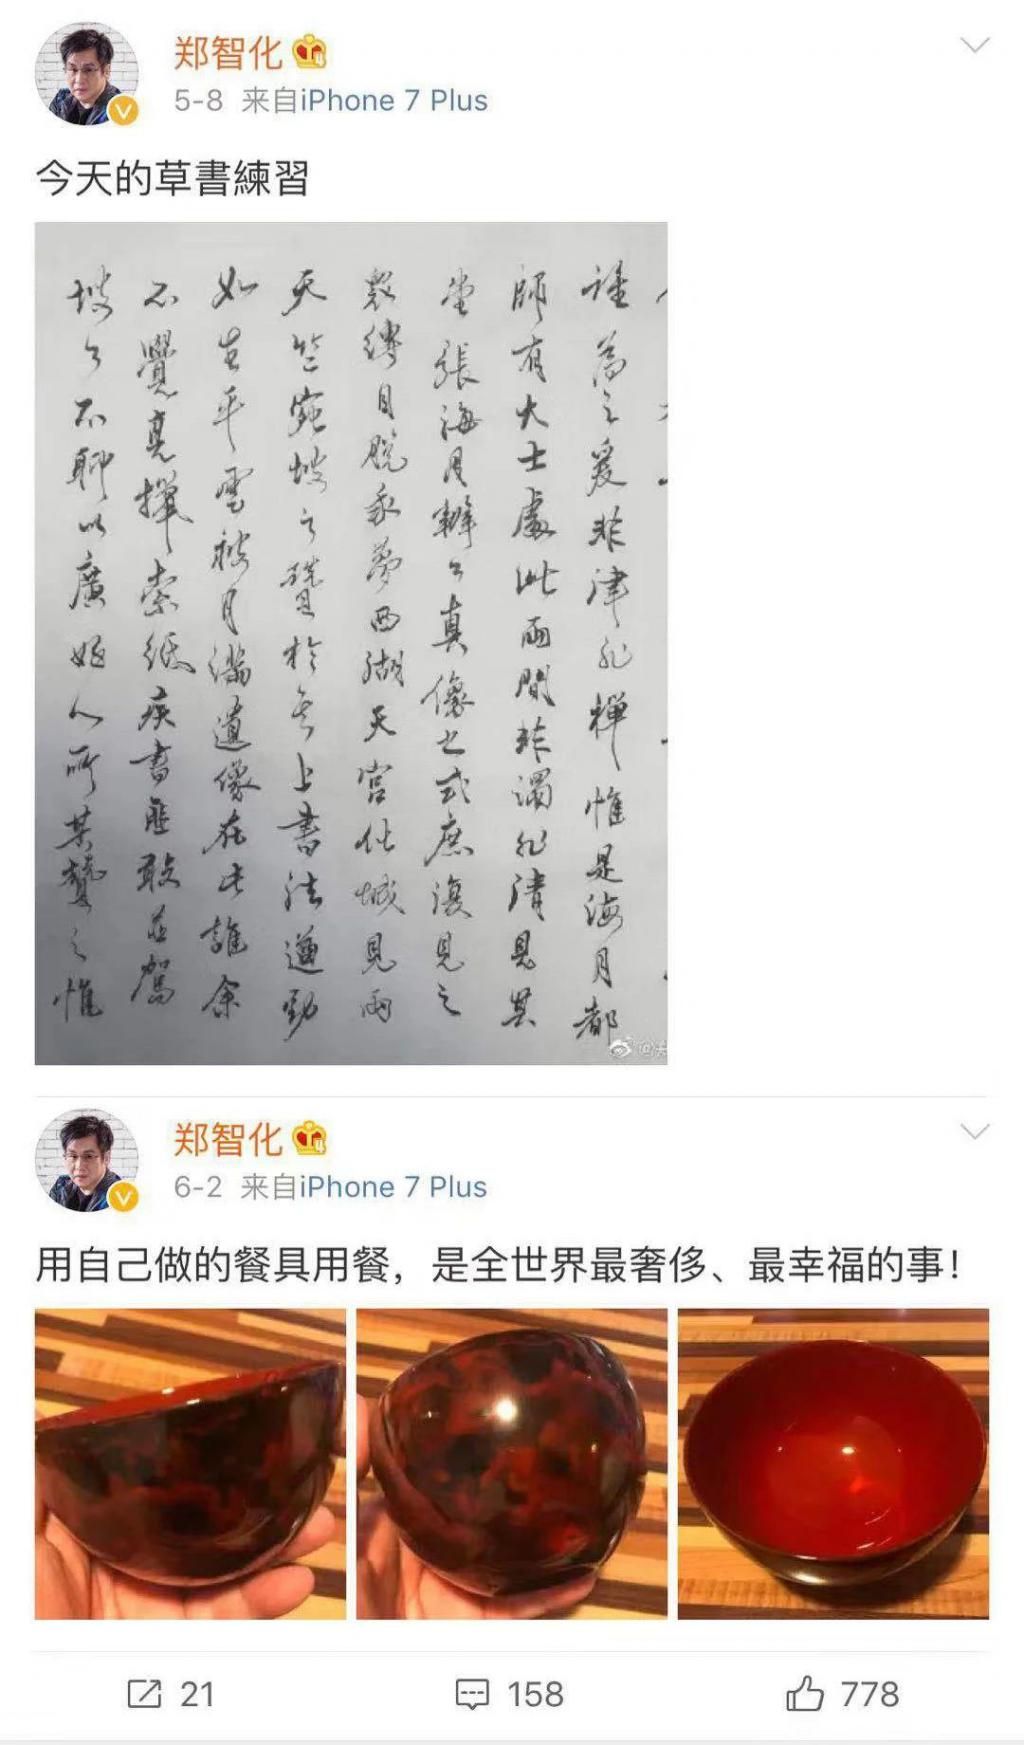 郑智化
5-8 来自iPhone 7 Plus
今天的草書練習
誰為之爰非律非禪惟是海月都
師有大士處此兩間非濁非清見其
堂張海月辯公真像之式庶復見之
眾縛自脫我夢西湖天宮化城見兩
天竺宛坡之贊於上書法遒勁
如生平雲披月滿遺像在此誰余
不覺索紙疾書匪敢並駕
坡公不聊以廣人所贊之惟
郑智化
6-2 来自iPhone 7 Plus
用自己做的餐具用餐，是全世界最奢侈、最幸福的事！
21 158 778